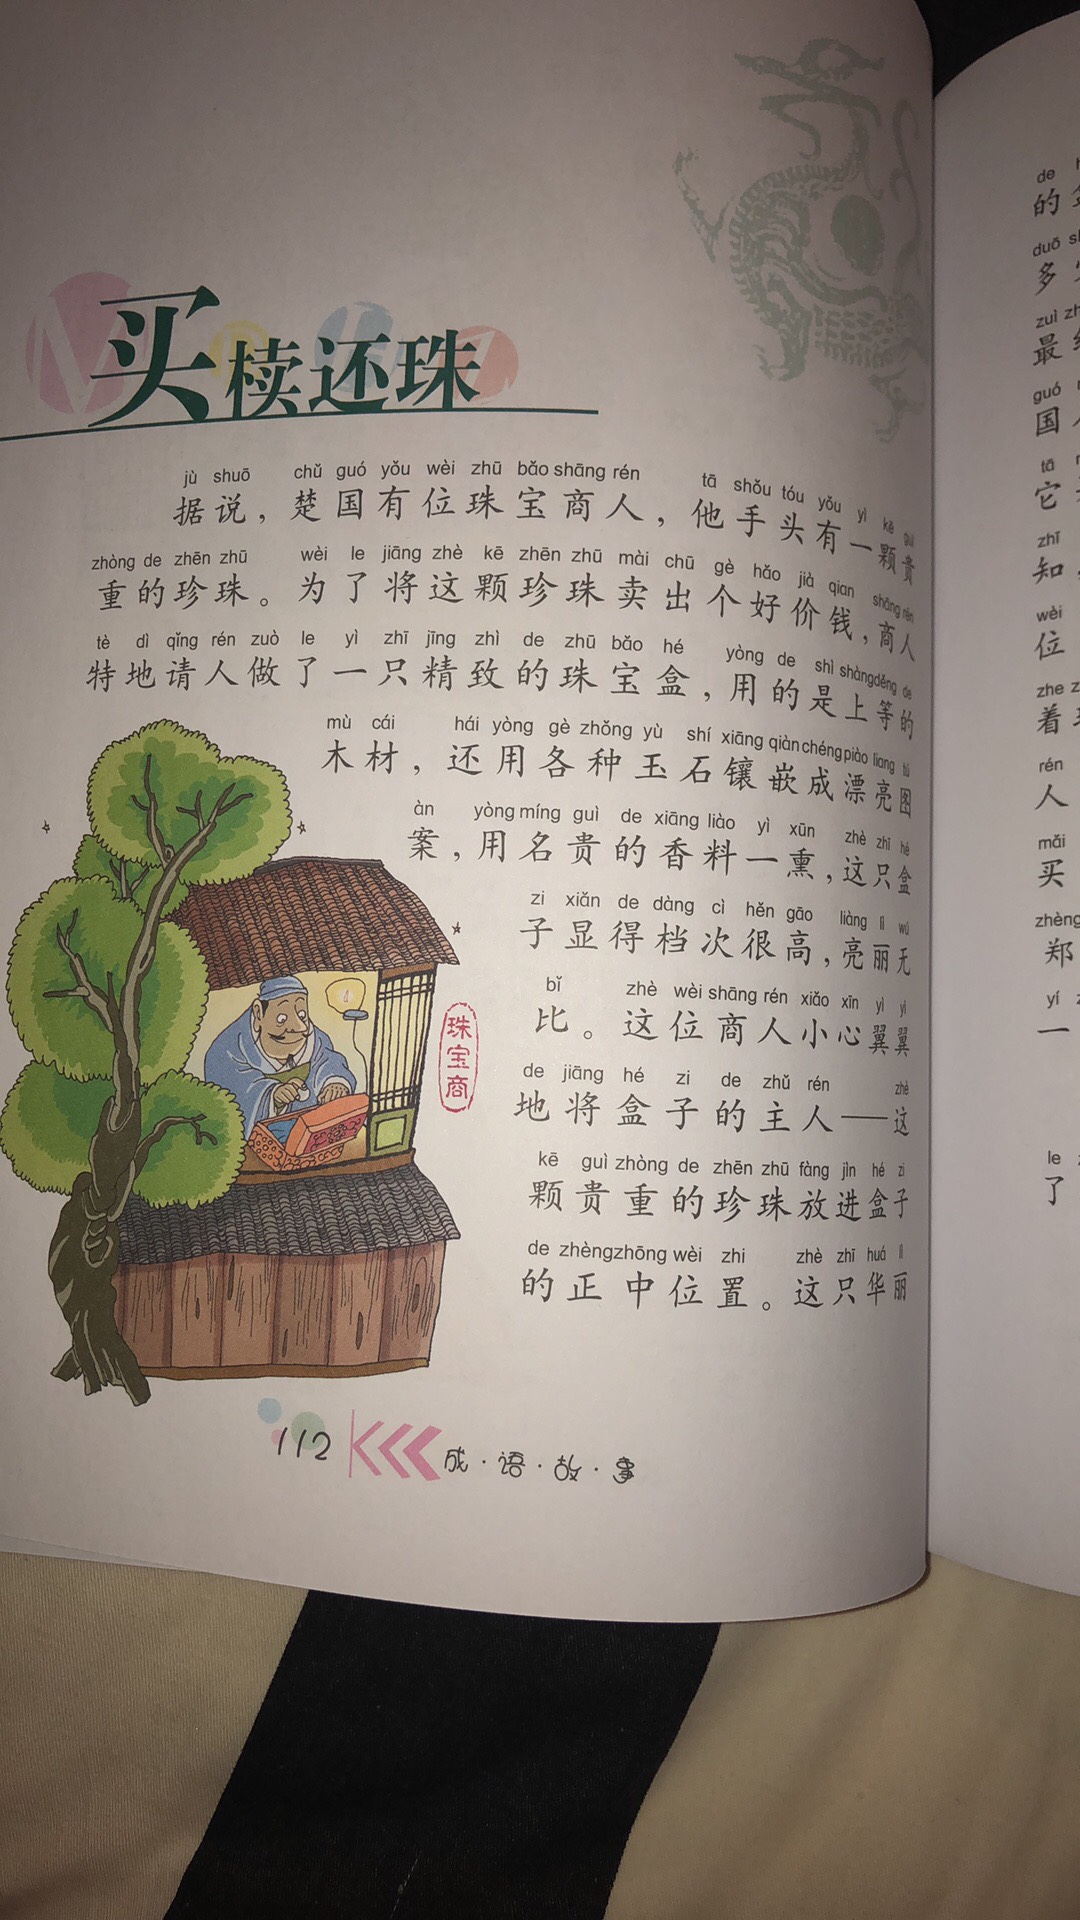 买椟还珠
jù shuō chǔ guó yǒu wèi zhū bǎo shāng rén tā shǒu tóu yǒu yì kē guì
据说，楚国有位珠宝商人，他手头有一颗贵
zhòng de zhēn zhū wèi le jiāng zhè kē zhēn zhū mài chū gè hǎo jià qian shāng rén
重的珍珠。为了将这颗珍珠卖出个好价钱，商人
tè dì qǐng rén zuò le yì zhī jīng zhì de zhū bǎo hé yòng de shì shàng děng de
特地请人做了一只精致的珠宝盒，用的是上等的
mù cái hái yòng gè zhǒng yù shí xiāng qiàn chéng piào liang tú
木材，还用各种玉石镶嵌成漂亮图
àn yòng míng guì de xiāng liào yì xūn zhè zhī hé
案，用名贵的香料一熏，这只盒
zi xiǎn de dàng cì hěn gāo liàng lì wú
子显得档次很高，亮丽无
bǐ zhè wèi shāng rén xiǎo xīn yì yì
比。这位商人小心翼翼
de jiāng hé zi de zhǔ rén zhè
地将盒子的主人——这
kē guì zhòng de zhēn zhū fàng jìn hé zi
颗贵重的珍珠放进盒子
de zhèng zhōng wèi zhi zhè zhī huá lì
的正中位置。这只华丽
珠宝商
112
成·语·故·事
de
的
duō
多
zuì
最
guó
国
tā
它
zhī
知
wèi
位
zhe
着
rén
人
mǎi
买
zhèng
郑
yí
一
le
了